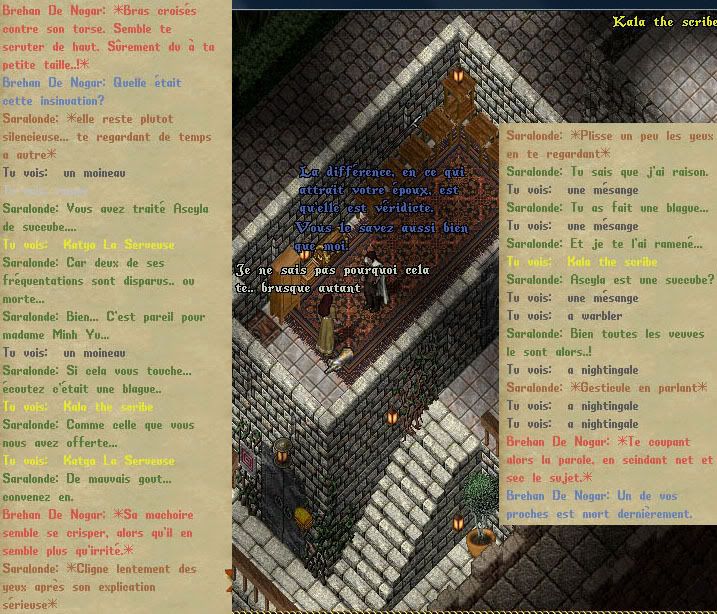 Brehan De Nogar: *Bras croisés
contre son torse. Semble te
scruter de haut. Sûrement du à ta
petite taille..!*
Brehan De Nogar: Quelle était
cette insinuation?
Saralonde: *elle reste plutot
silencieuse... te regardant de temps
a autre*
Tu vois: un moineau
Saralonde: Vous avez traité Ascyla
de succube....
Tu vois: Katya La Serveuse
Saralonde: Car deux de ses
fréquentations sont disparus.. ou
morte...
Saralonde: Bien... C'est pareil pour
madame Minh Yu...
Tu vois: un moineau
Saralonde: Si cela vous touche...
écoutez c'était une blague..
Tu vois: Kala the scribe
Saralonde: Comme celle que vous
nous avez offerte...
Tu vois: Katya La Serveuse
Saralonde: De mauvais gout...
convenez en.
Brehan De Nogar: *Sa machoire
semble se crisper, alors qu'il en
semble plus qu'irrité.*
Saralonde: *Cligne lentement des
yeux après son explication
sérieuse*
Kala the scribe
La différence, en ce qui
attrait votre époux, est
qu'elle est véridicte.
Vous le savez aussi bien
que moi.
Je ne sais pas pourquoi cela
te.. brusque autant
Saralonde: *Plisse un peu les yeux
en te regardant*
Saralonde: Tu sais que j'ai raison.
Tu vois: une mésange
Saralonde: Tu as fait une blague...
Tu vois: une mésange
Saralonde: Et je te l'ai ramené...
Tu vois: Kala the scribe
Saralonde: Ascyla est une succube?
Tu vois: une mésange
Tu vois: a warbler
Saralonde: Bien toutes les veuves
le sont alors..!
Tu vois: a nightingale
Saralonde: *Gesticule en parlant*
Tu vois: a nightingale
Tu vois: a nightingale
Brehan De Nogar: *Te coupant
alors la parole, en scindant net et
sec le sujet.*
Brehan De Nogar: Un de vos
proches est mort dernièrement.